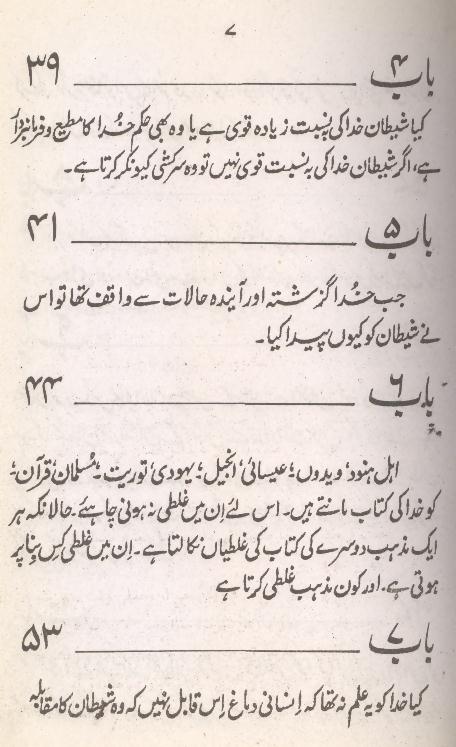 ۷
باب ۴ ۳۹
کیا شیطان خدا کی بنسبت زیادہ قوی ہے یا وہ بھی حکم خُدا کا مطیع و فرمانبردار
ہے، اگر شیطان خدا کی بہ نسبت قوی نہیں تو وہ سرکشی کیونکر کرتا ہے۔
باب ۵ ۴۱
جب خُدا گزشتہ اور آیندہ حالات سے واقف تھا تو اس
نے شیطان کو کیوں پیدا کیا۔
باب ۶ ۴۴
اہل ہنود، ویدوں؛ عیسائی، انجیل؛ یہودی، توریت۔ مُسلمان، قرآن؛
کو خدا کی کتاب مانتے ہیں۔ اس لئے اِن میں غلطی نہ ہونی چاہئے۔ حالانکہ ہر
ایک مذہب دوسرے کی کتاب کی غلطیاں نکالتا ہے۔ اِن میں غلطی کس بِنا پر
ہوتی ہے۔ اور کون مذہب غلطی کرتا ہے
باب ۷ ۵۳
کیا خدا کو یہ علم نہ تھا کہ اِنسانی دماغ اِس قابل نہیں کہ وہ شیطان کا مقابلہ